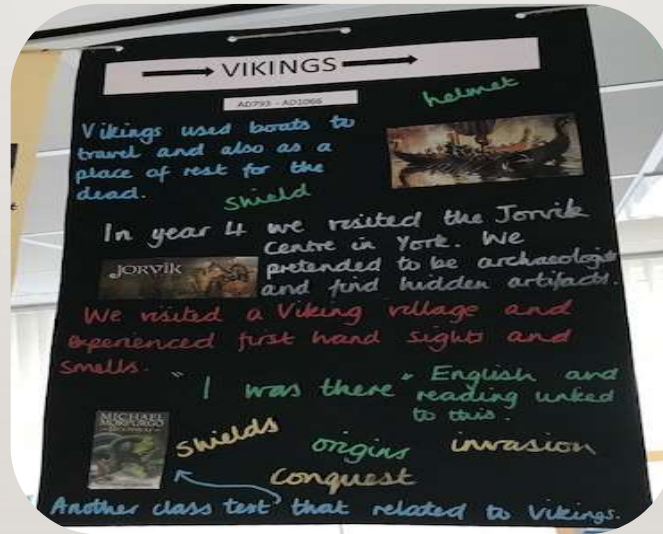 VIKINGS
AD793 - AD1066
helmet
Vikings used boats to
travel and also as a
place of rest for the
dead.
shield
In year 4 we visited the Jorvik
Centre in York. We
pretended to be archaeologist
and find hidden artifacts.
JORVIK
We visited a Viking village and
experienced first hand sights and
smells.
"I was there" English and
reading linked
to this.
MICHAEL
MORPURGO
BEOWULF
shields
origins
invasion
conquest
Another class text that related to Vikings.